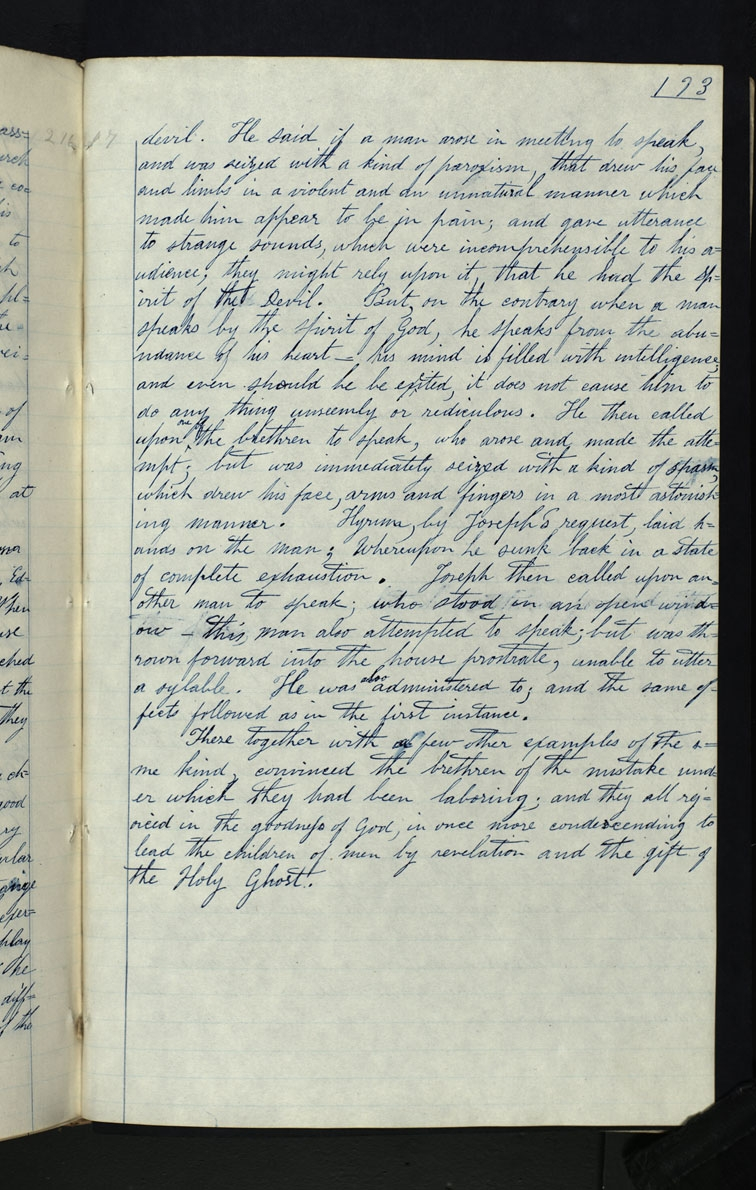 193
devil. He said if a man arose in meeting to speak,
and was seized with a kind of paroxism, that drew his face
and limbs in a violent and an unnatural manner which
made him appear to be in pain; and gave utterance
to strange sounds, which were incomprehensible to his a=
udience, they might rely upon it, that he had the sp=
irit of the Devil. But, on the contrary when a man
speaks by the spirit of God, he speaks from the abu=
ndance of his heart — his mind is filled with intelligence,
and even should he be exited, it does not cause him to
do any thing unseemly or ridiculous. He then called
upon one of the brethren to speak, who arose and made the atte=
mpt; but was immediately seized with a kind of spasm,
which drew his face, arms and fingers in a most astonish
ing manner. Hyrum, by Joseph's request, laid h=
ands on the man; Whereupon he sunk back in a state
of complete exhaustion. Joseph then called upon an=
other man to speak; who stood in an open wind=
ow — this, man also attempted to speak; but was th=
rown forward into the house prostrate, unable to utter
a sylable. He was also administered to; and the same ef=
fects followed as in the first instance.
These together with a few other examples of the s=
me kind, convinced the brethren of the mistake und=
er which they had been laboring; and they all rej=
oiced in the goodness of God, in once more condescending to
lead the children of men by revelation and the gift of
the Holy Ghost.